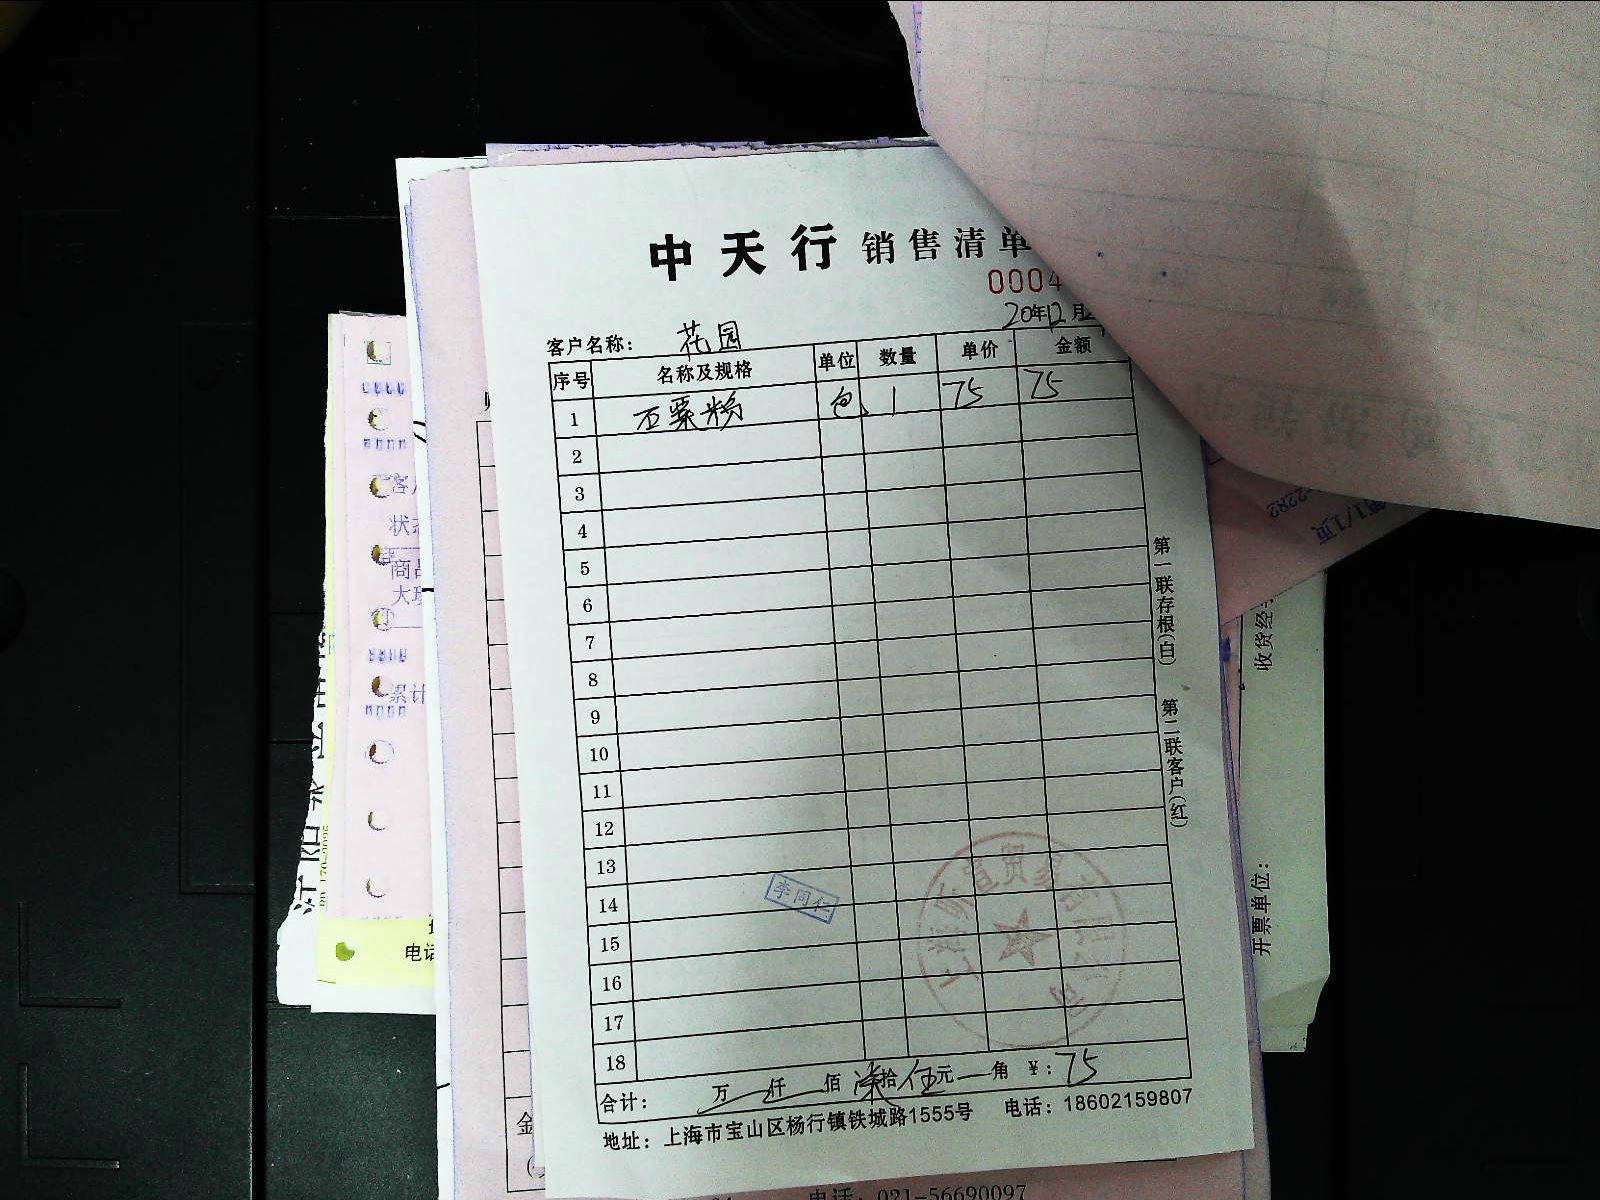 中天行 销售清单
0004
20年12月
客户名称： 花园
序号 名称及规格 单位 数量 单价 金额
1 石粟粉 包 1 75 75
2
3
4
5
6
7
8
9
10
11
12
13
14
15
16
17
18
李同仁
合计： 万 仟 佰 柒拾伍元 角 ￥：75
地址：上海市宝山区杨行镇铁城路1555号 电话：18602159807
第一联存根(白)
第二联客户(红)
客
状态
商品
累计
电话
收货经
开票单位：
第1/1页
2282
金
电话：021-56690097